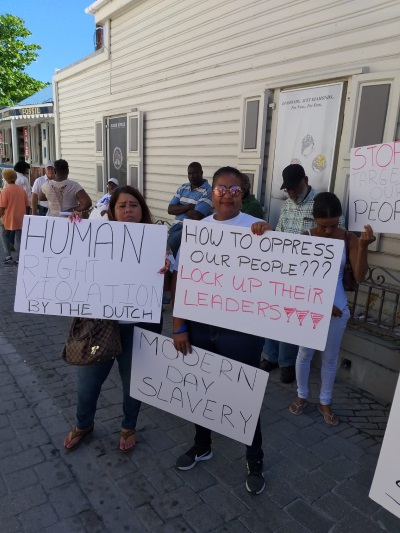 HUMAN
RIGHT
VIOLATION
BY THE DUTCH
HOW TO OPPRESS
OUR PEOPLE???
LOCK UP THEIR
LEADERS
MODERN
DAY
SLAVERY
STOP
OUR
PEOPL